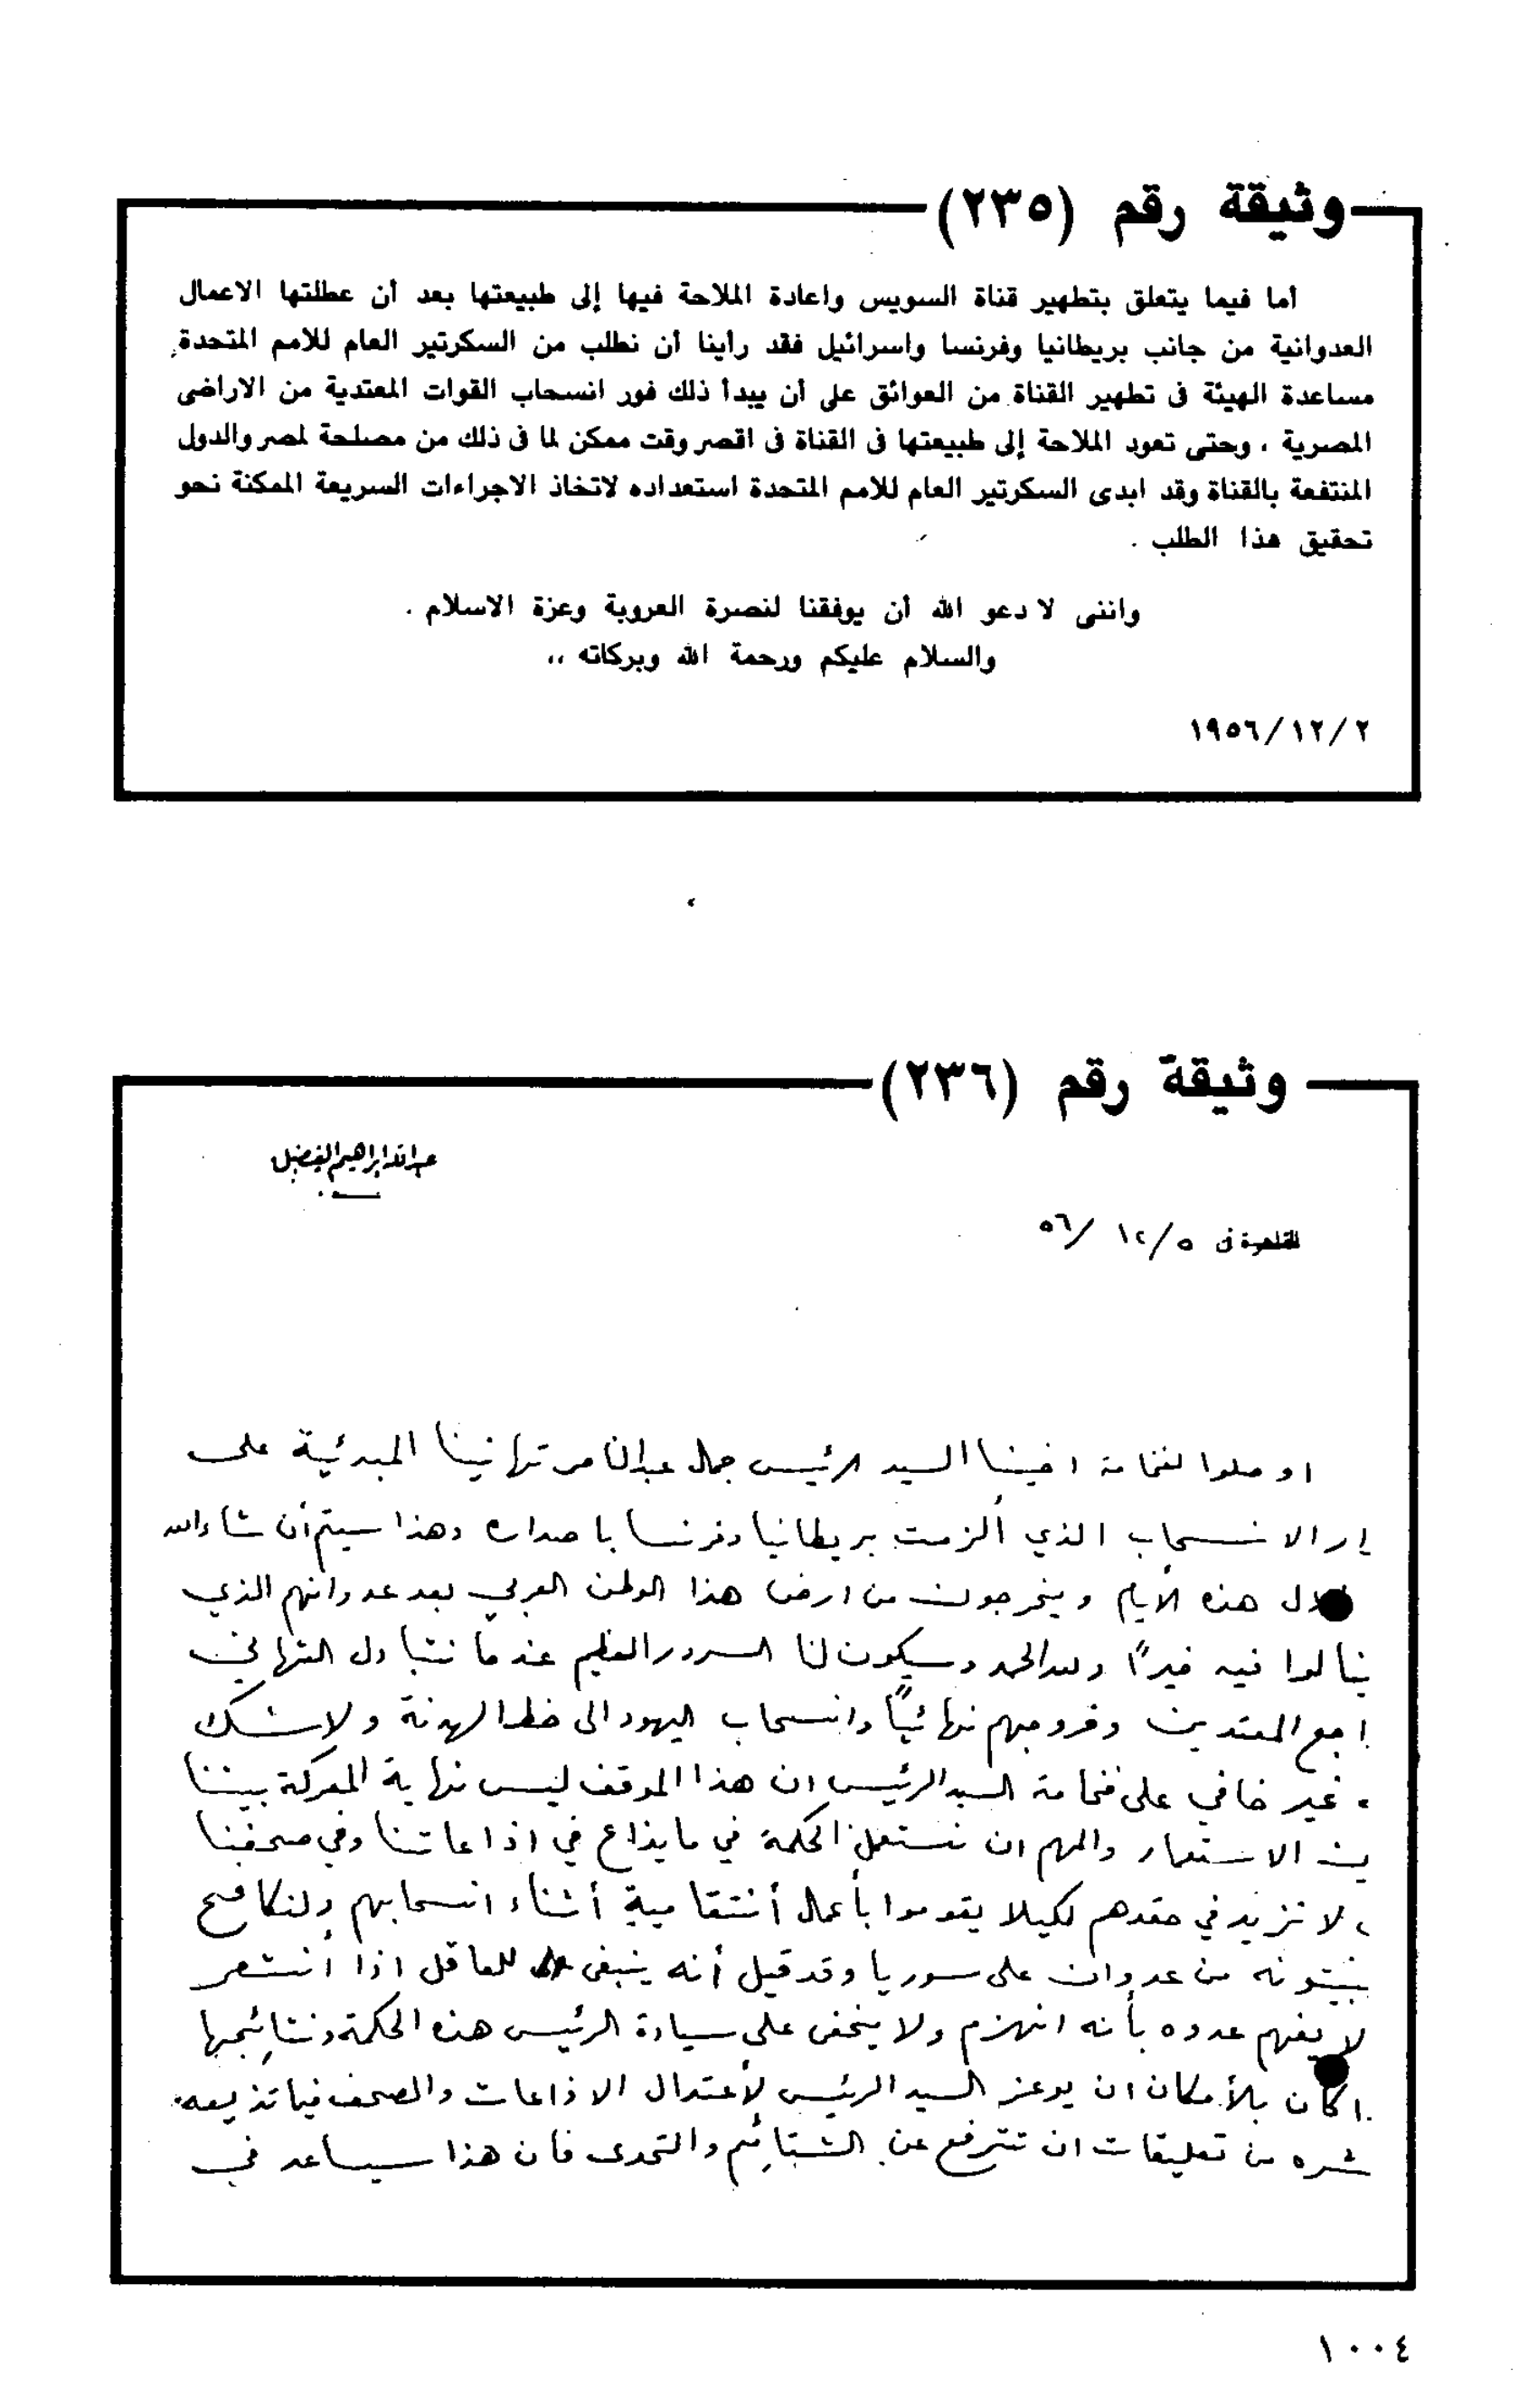 وثيقة رقم (٢٣٥)
أما فيما يتعلق بتطهير قناة السويس واعادة الملاحة فيها إلى طبيعتها بعد أن عطلتها الاعمال
العدوانية من جانب بريطانيا وفرنسا واسرائيل فقد رأينا أن نطلب من السكرتير العام للامم المتحدة
مساعدة الهيئة فى تطهير القناة من العوائق على أن يبدأ ذلك فور انسحاب القوات المعتدية من الاراضى
المصرية ، وحتى تعود الملاحة إلى طبيعتها فى القناة فى اقصر وقت ممكن لما فى ذلك من مصلحة لمصر والدول
المنتفعة بالقناة وقد ابدى السكرتير العام للامم المتحدة استعداده لاتخاذ الاجراءات السريعة الممكنة نحو
تحقيق هذا الطلب .
واننى لا دعو الله أن يوفقنا لنصرة العروبة وعزة الاسلام .
والسلام عليكم ورحمة الله وبركاته ،،
١٩٥٦/١٢/٢
وثيقة رقم (٢٣٦)
عبدالله ابراهيم الفضيل
القاهرة فى ٥/ ١٢/ ٥٦
اوصلوا لفخامة اخينا السيد الرئيس جمال عبدالناصر تهانينا المبدئية على
رار الانسحاب الذي ألزمت بريطانيا وفرنسا باصداره وهذا سيتم أن شاء الله
خلال هذه الأيام ويخرجون من ارض هذا الوطن العربي بعد عدوانهم الذي
ينالوا فيه خيراً ولله الحمد وسيكون لنا السرور العظيم عندما نتبادل التهاني
اجع المعتدين وخروجهم نهائياً وانسحاب اليهود الى خط الهدنة ولاشك
غير خافي على فخامة السيد الرئيس ان هذا الموقف ليس نهاية المعركة بيننا
ين الاستعمار والمهم ان نستعمل الحكمة في ما يذاع في اذاعاتنا وفي صحفنا
لا نزيد في حقدهم لكيلا يقوموا بأعمال أنتقامية أثناء انسحابهم ولنكافح
يبيتونه من عدوان على سوريا وقد قيل أنه ينبغى للعاقل اذا أنتصر
لا يفهم عدوه بأنه انهزم ولا يخفى على سيادة الرئيس هذه الحكمة ونتائجها
اكان بالأمكان ان يوعز السيد الرئيس لأعتدال الاذاعات والصحف فيما تذيعه
شره من تعليقات ان تترفع عن الشتائم والتحدى فان هذا سيساعد في
١٠٠٤